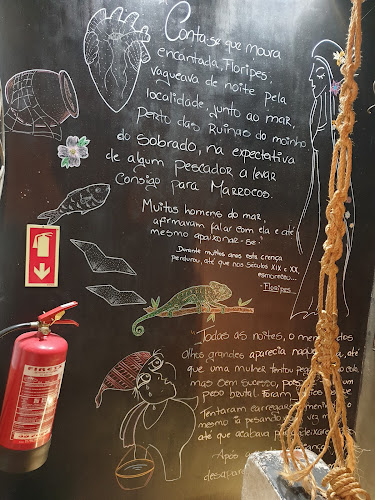 Conta-se que moura
encantada, Floripes,
vagueava de noite pela
localidade, junto ao mar,
perto das Ruinas do moinho
do sobrado, na expectativa
de algum pescador a levar
consigo para Marrocos.
Muitos homens do mar,
afirmaram falar com ela e até
mesmo apaixonar-se.
Durante muitos anos esta crença
perdurou, até que nos Séculos XIX e XX,
esmoreceu...
Floripes
"Todas as noites, o men dos
olhos grandes aparecia naque a, até
que uma mulher tentou pega colo,
mas sem sucesso, pois um
peso brutal. Foram
Tentaram carregar
mesmo ia pesando vez m
até que acabava deixare
Após
desapar